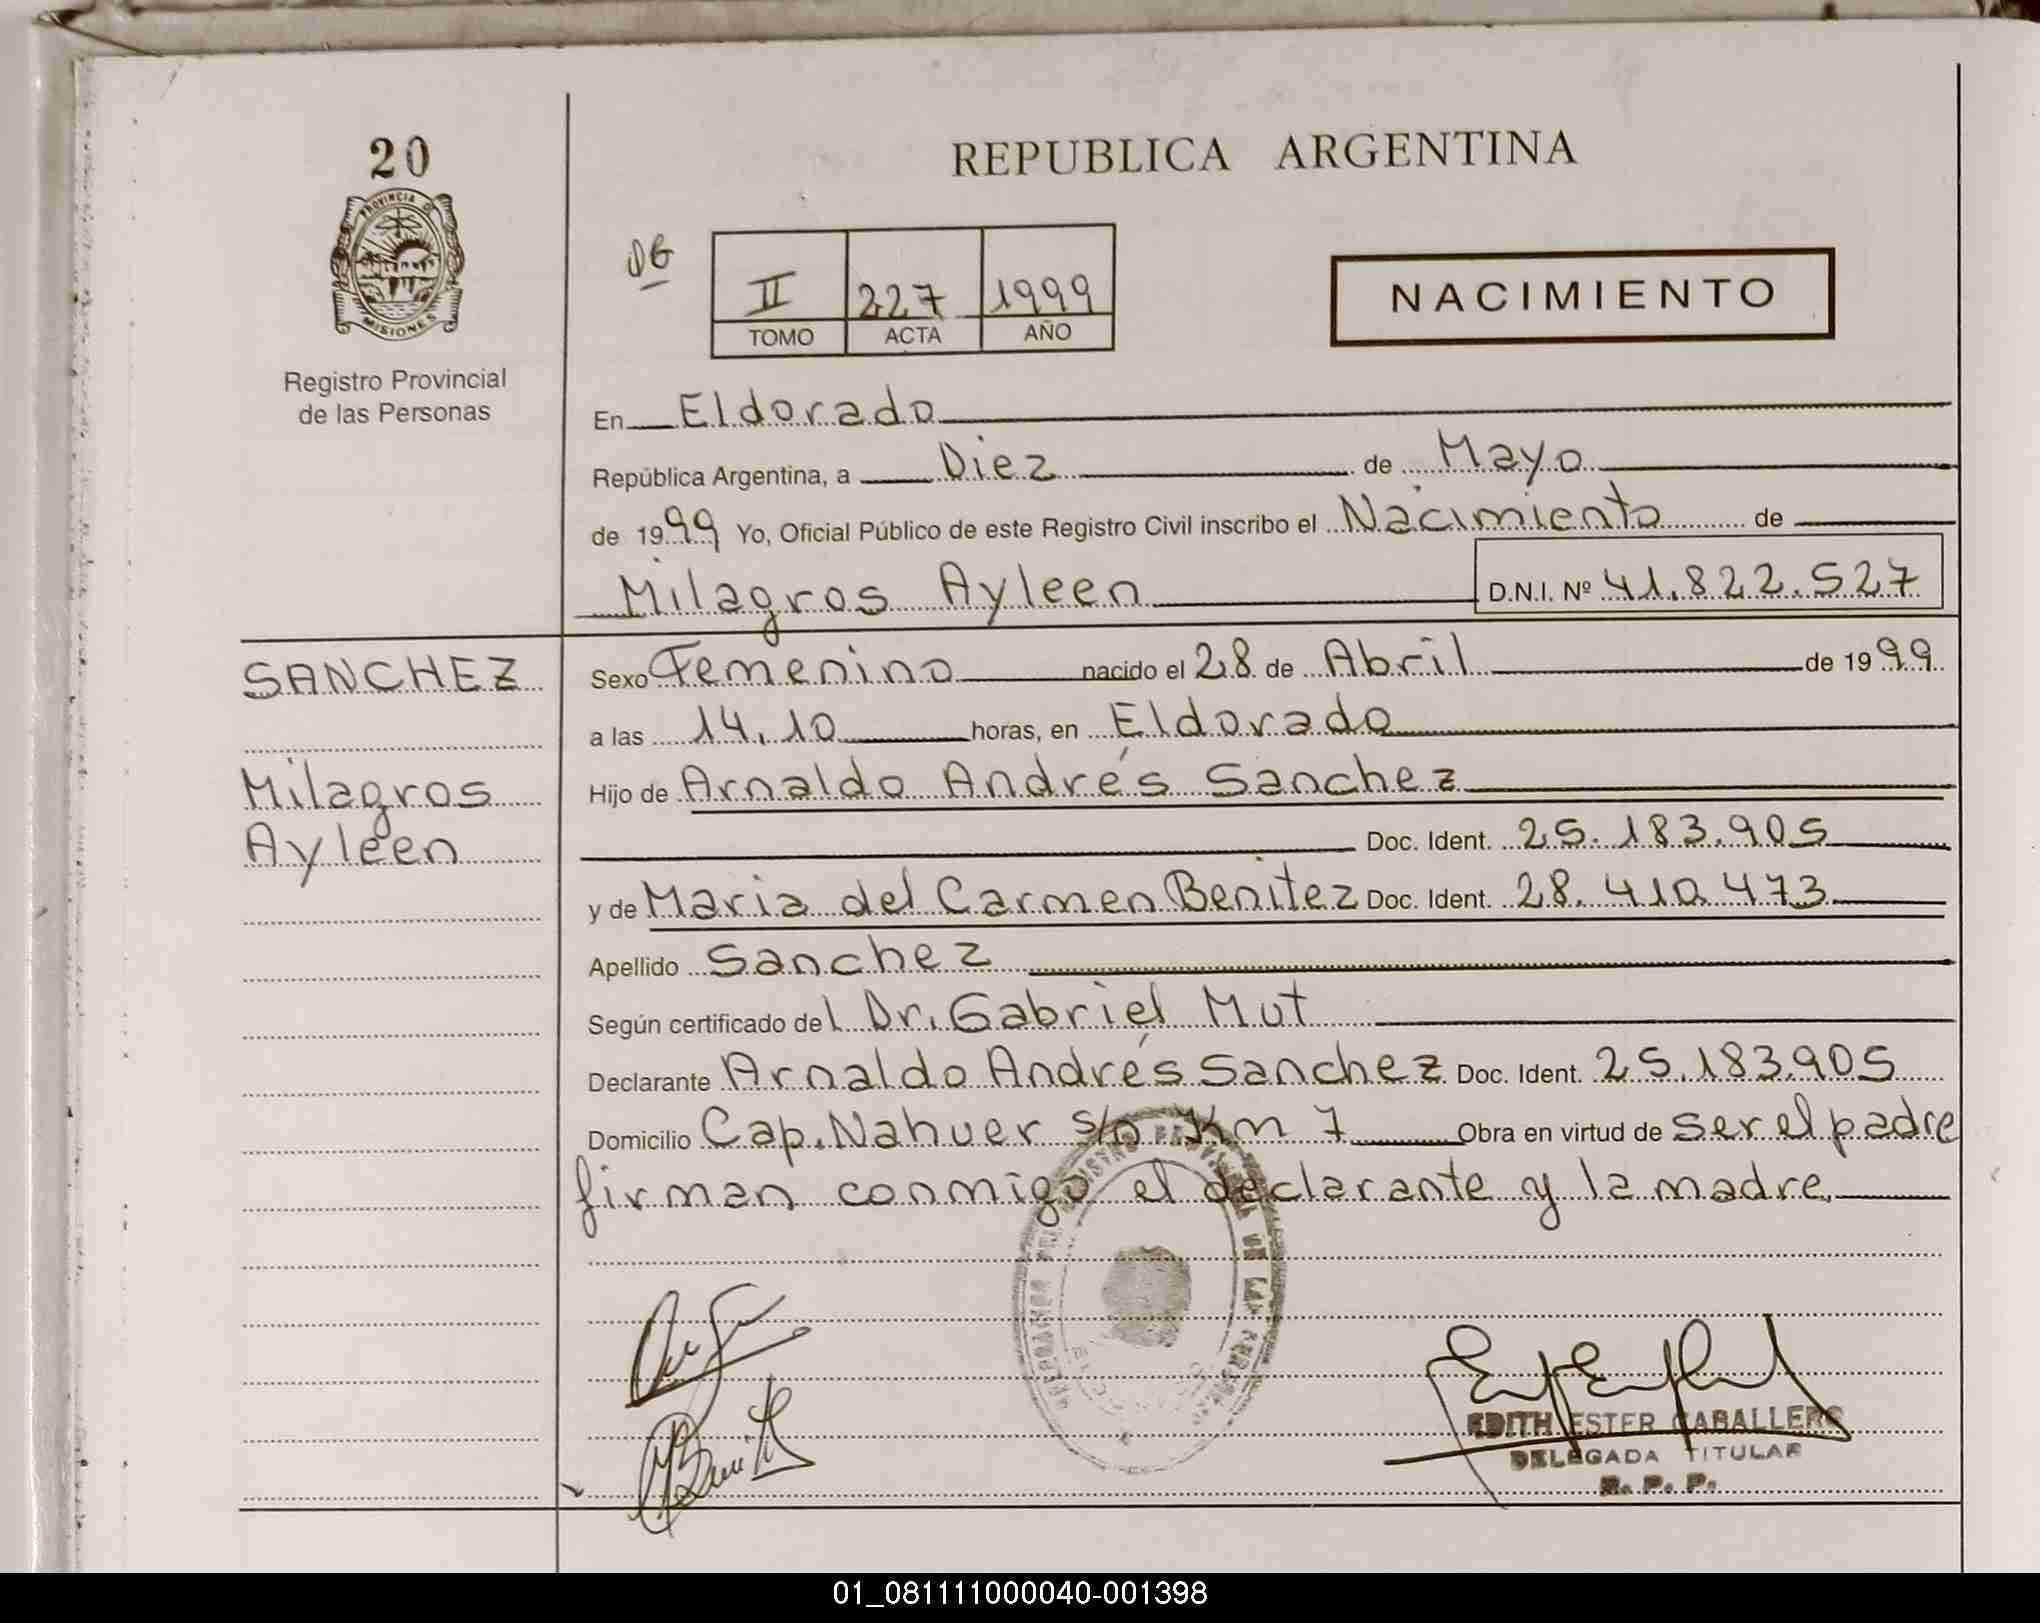 20
PROVINCIA D
MISIONES
Registro Provincial
de las Personas
REPUBLICA ARGENTINA
II 227 1999
TOMO ACTA AÑO
NACIMIENTO
En Eldorado
República Argentina, a Diez de Mayo
de 1999 Yo, Oficial Público de este Registro Civil inscribo el Nacimiento de
Milagros Ayleen D.N.I. Nº 41.822.527
SANCHEZ
Milagros
Ayleen
Sexo Femenino nacido el 28 de Abril de 1999
a las 14,10 horas, en Eldorado
Hijo de Arnaldo Andrés Sanchez
Doc. Ident. 25.183.905
y de Maria del Carmen Benitez Doc. Ident. 28.410.473
Apellido Sanchez
Según certificado del Dr. Gabriel Mut
Declarante Arnaldo Andrés Sanchez Doc. Ident. 25.183.905
Domicilio Cap. Nahuer s/n Km 7 Obra en virtud de ser el padre
firman conmigo el declarante y la madre.
EDITH ESTER CABALLERO
DELEGADA TITULAR
R. P. P.
01_081111000040-001398